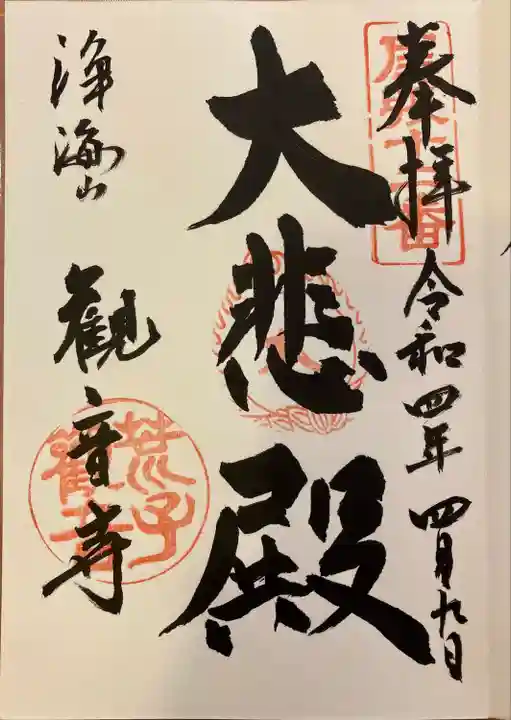 奉拝
令和四年四月九日
大悲殿
浄海山
観音寺
荒子
観音